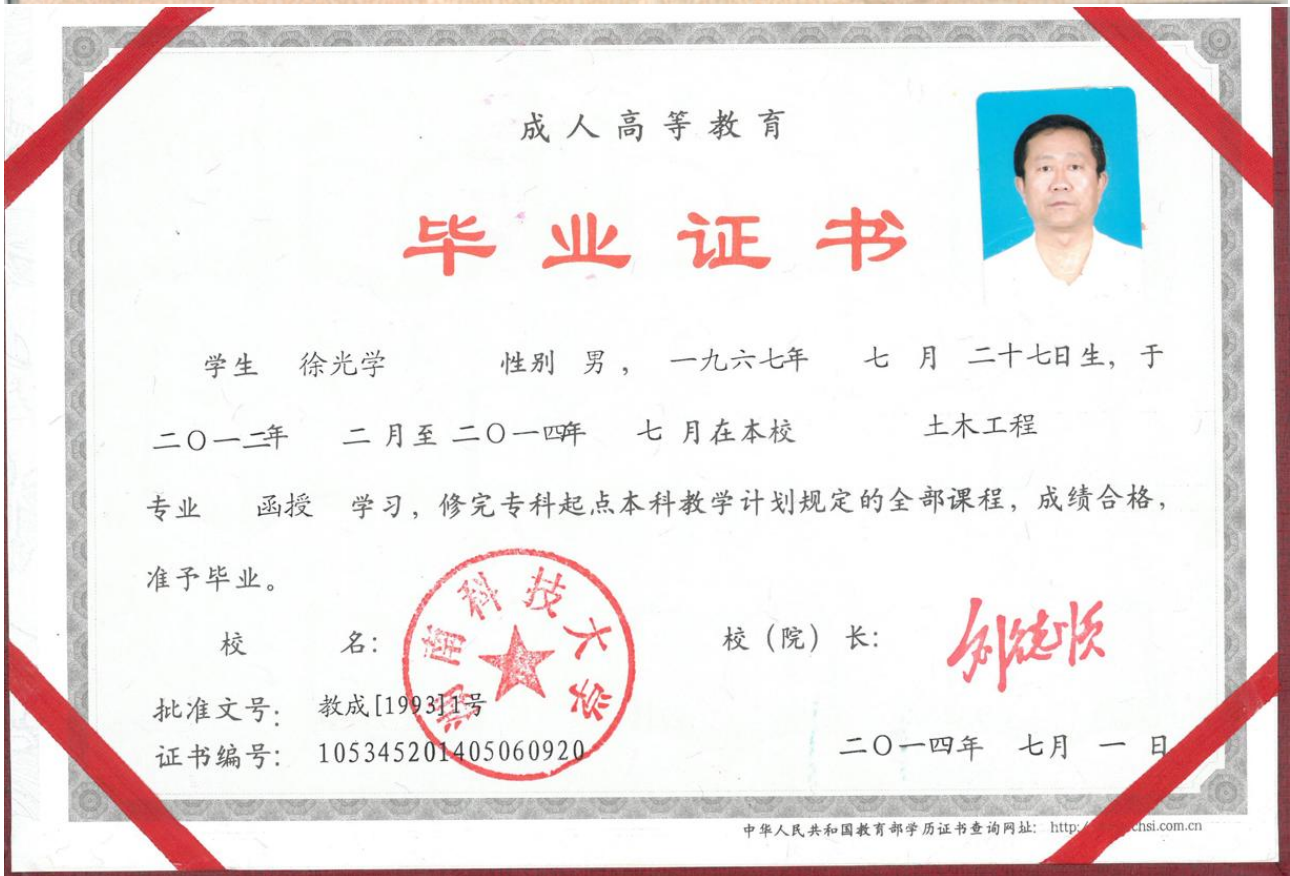 成人高等教育
毕业证书
学生 徐光学 性别 男， 一九六七年 七 月 二十七日生，于
二〇一二年 二 月至二〇一四年 七 月在本校 土木工程
专业 函授 学习，修完专科起点本科教学计划规定的全部课程，成绩合格，
准予毕业。
校 名： 湖南科技大学
校（院）长： 刘德顺
批准文号： 教成[1993]1号
证书编号： 105345201405060920
二〇一四年 七月 一 日
中华人民共和国教育部学历证书查询网址： http: chsi.com.cn